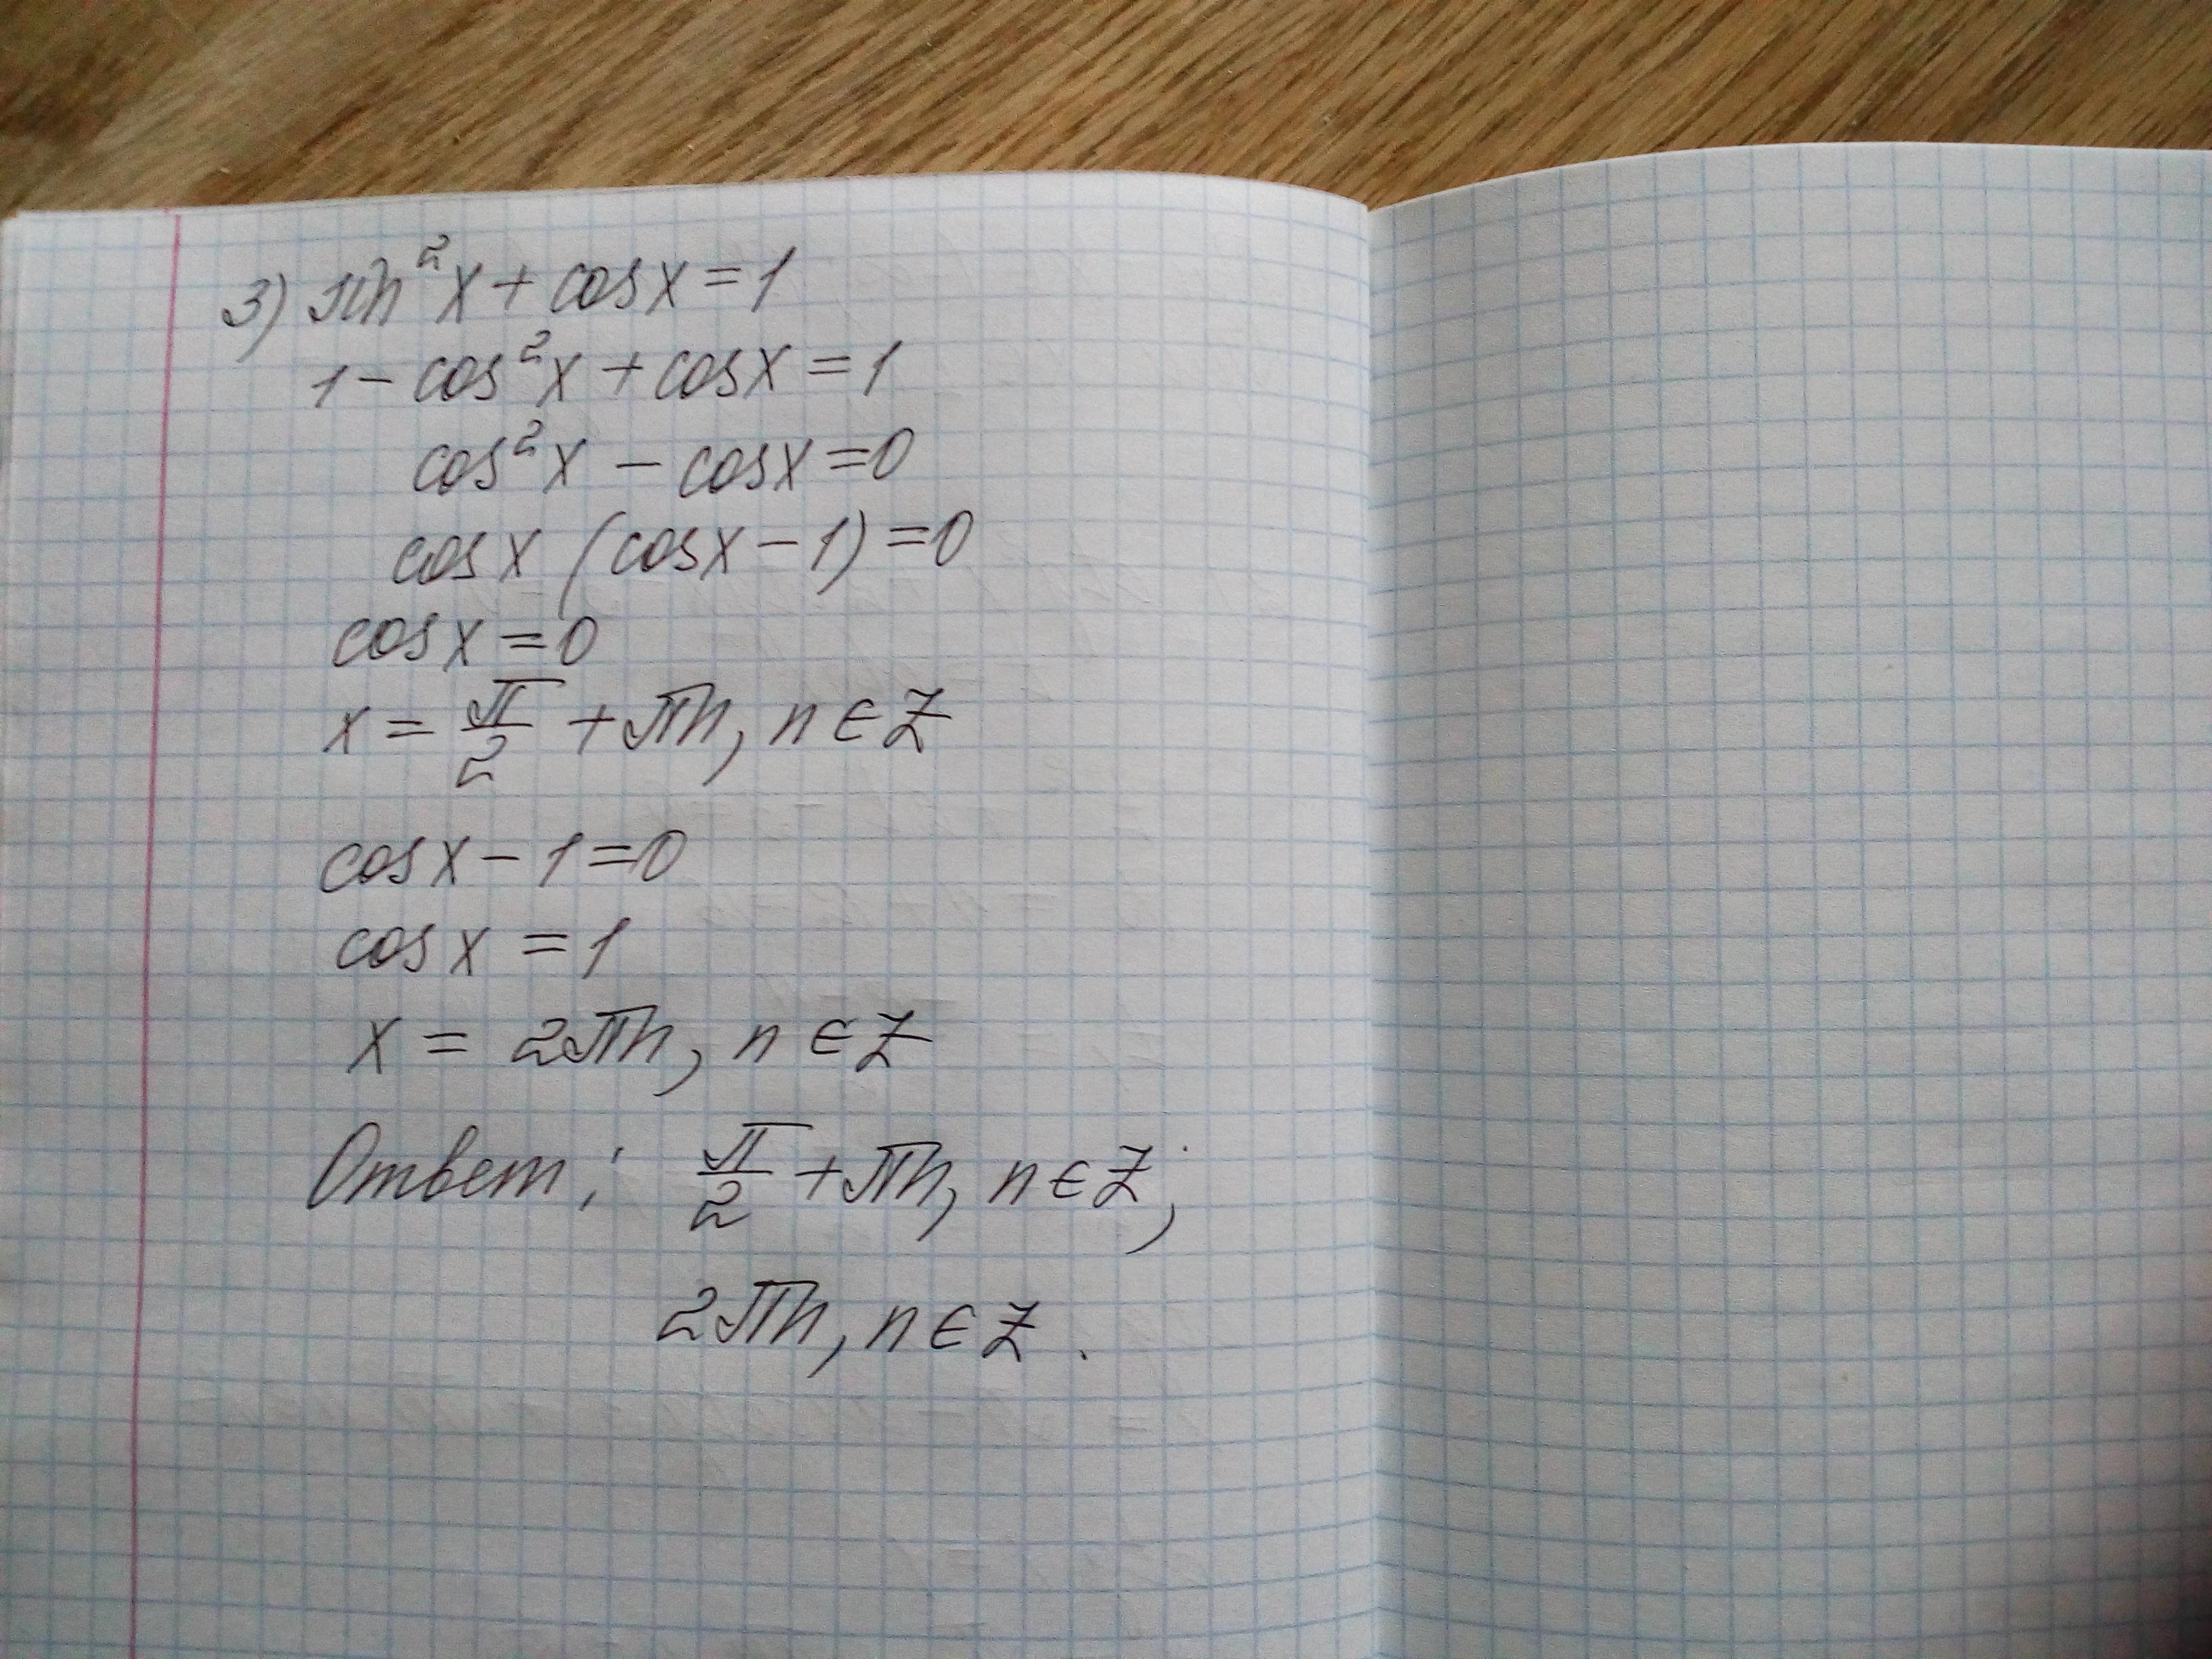 3) sin²x + cosx = 1
1 - cos²x + cosx = 1
cos²x - cosx = 0
cosx (cosx - 1) = 0
cosx = 0
x = π/2 + πn, n ∈ Z
cosx - 1 = 0
cosx = 1
x = 2πn, n ∈ Z
Ответ: π/2 + πn, n ∈ Z;
2πn, n ∈ Z.